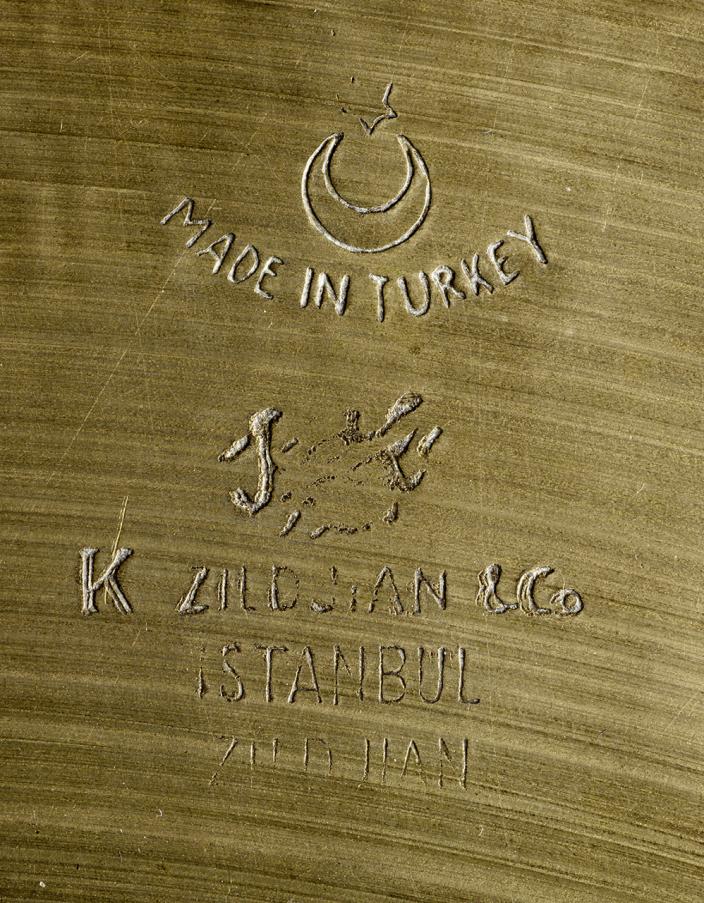 MADE IN TURKEY
K ZILDJIAN &Co
İSTANBUL
ZILDJIAN